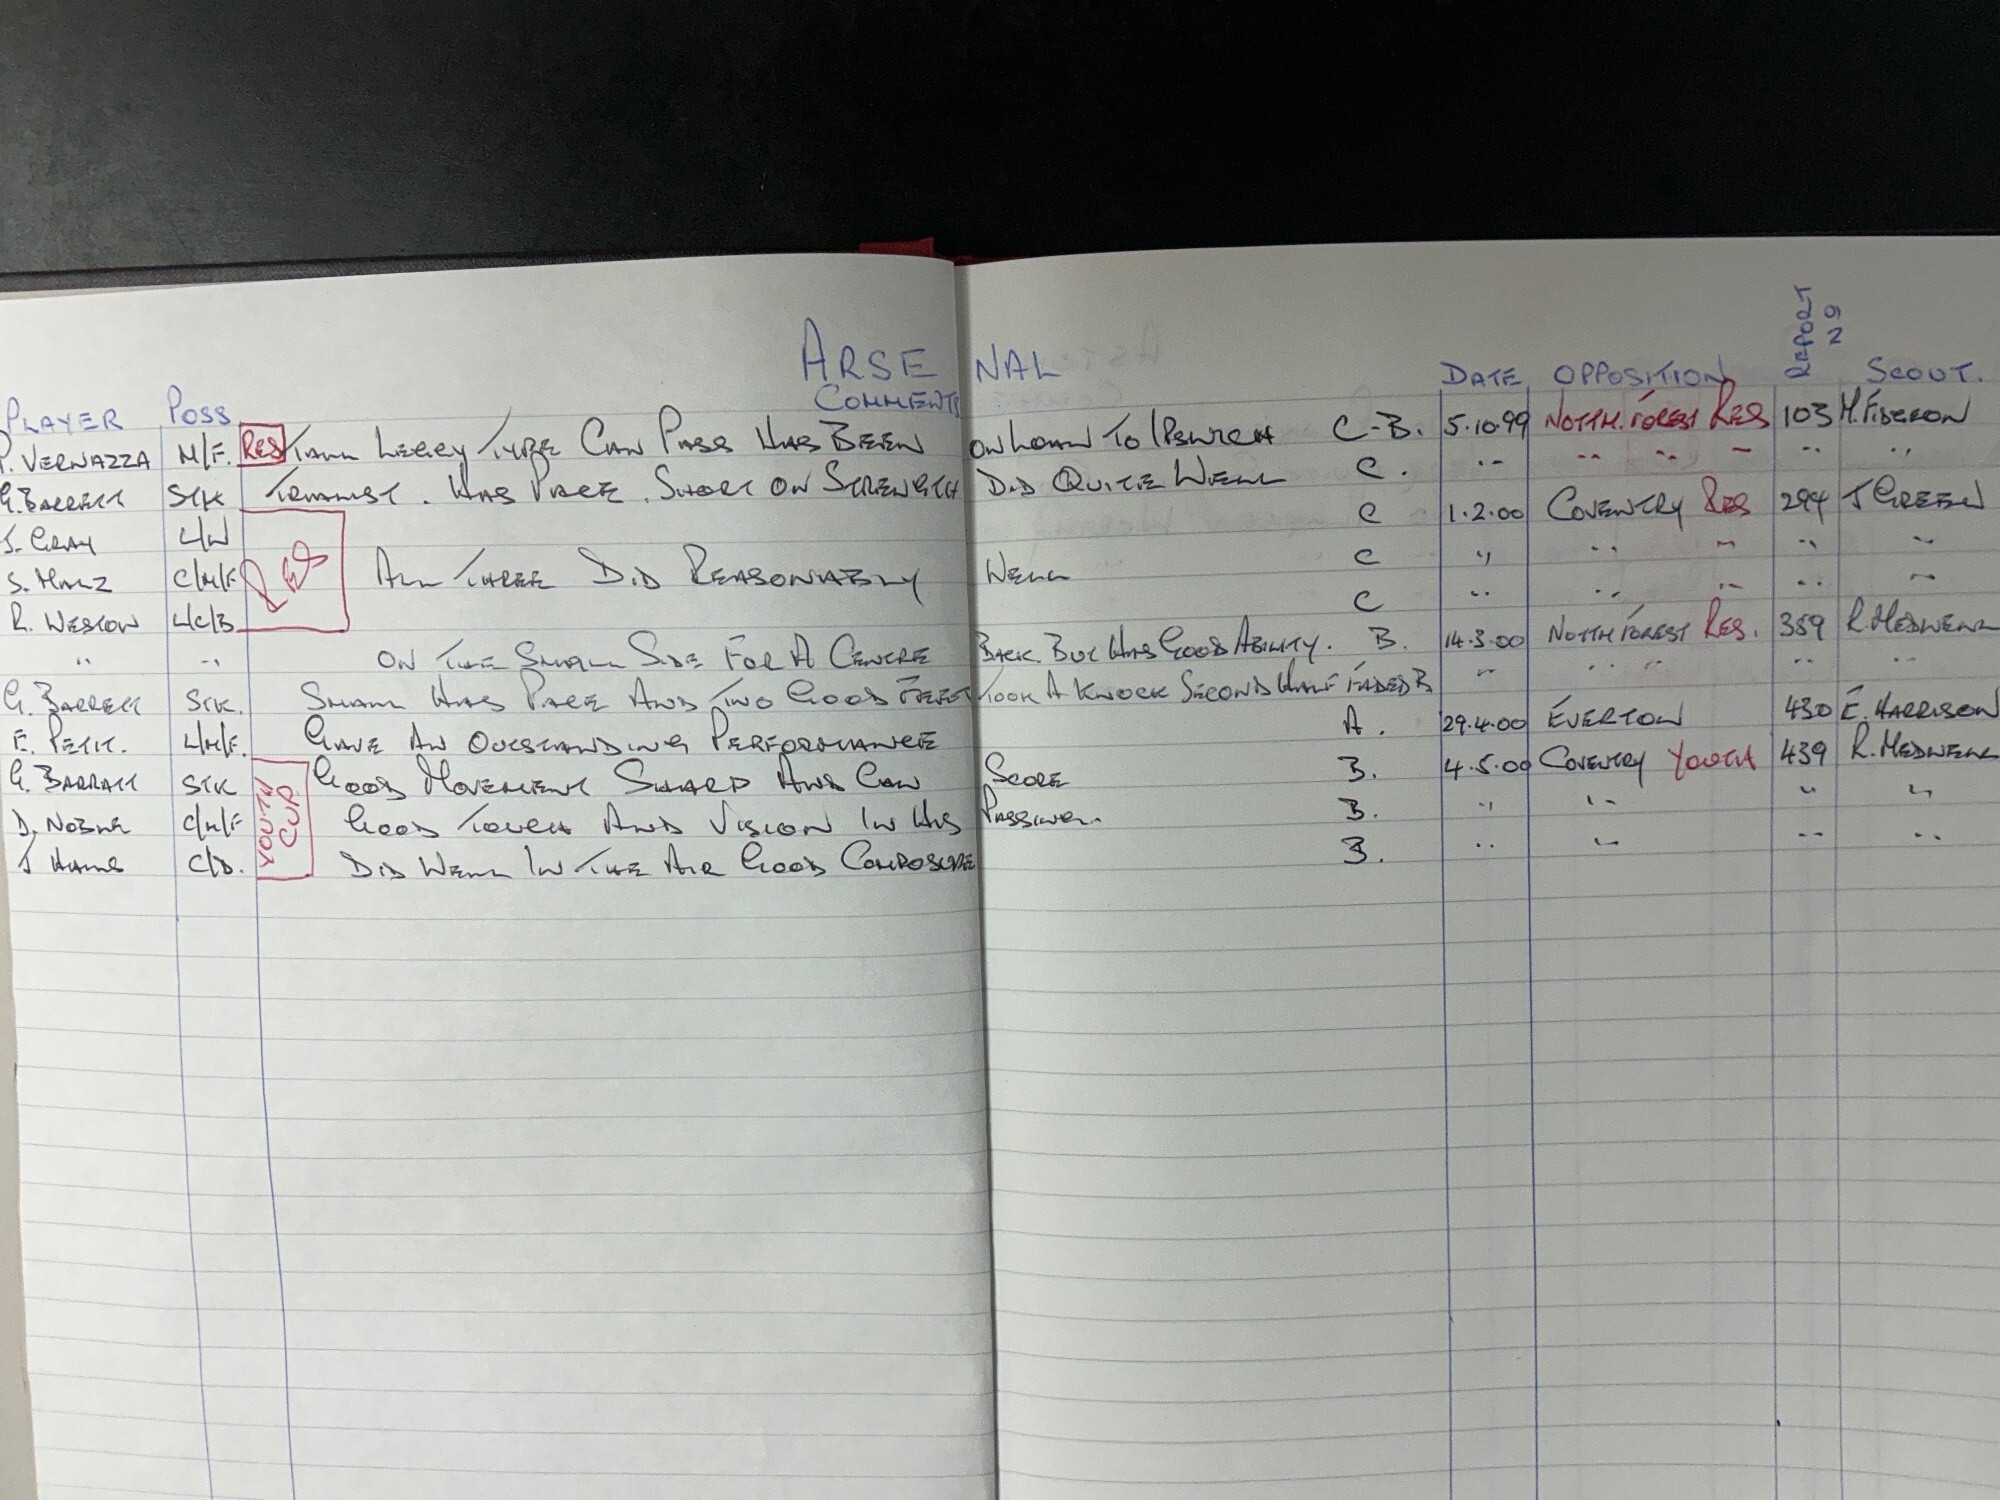 ARSENAL
PLAYER POSS COMMENTS DATE OPPOSITION REPORT No SCOUT.
P. VERNAZZA M/F. RES TALL LEGGY TYPE CAN PASS HAS BEEN ON LOAN TO IPSWICH C-B. 5.10.99 NOTTM. FOREST RES 103
G. BARRETT STK TRIALIST. HAS PACE. SHORT ON STRENGTH DID QUITE WELL C. " " " " " "
J. GRAY L/W C 1.2.00 COVENTRY RES 294 J GREEN
S. MALZ C/M/F RES ALL THREE DID REASONABLY WELL C " " " " "
R. WESTON L/C/B C " " " " "
" " ON THE SMALL SIDE FOR A CENTRE BACK. BUT HAS GOOD ABILITY. B. 14.3.00 NOTTM FOREST RES. 359 R. MEDWELL
G. BARRETT STK. SMALL HAS PACE AND TWO GOOD FEET TOOK A KNOCK SECOND HALF FADED B " " " " "
E. PETIT. L/M/F. GAVE AN OUTSTANDING PERFORMANCE A. 29.4.00 EVERTON 430 E. HARRISON
G. BARRATT STK YOUTH CUP GOOD MOVEMENT SHARP AND CAN SCORE B. 4.5.00 COVENTRY YOUTH 439 R. MEDWELL
D. NOBLE C/M/F GOOD TOUCH AND VISION IN HIS PASSING. B. " " " "
J HALLS C/D. DID WELL IN THE AIR GOOD COMPOSURE B. " " " "